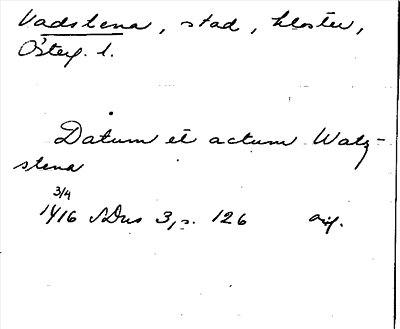 Vadstena, stad, kloster,
Österg. l.
Datum et actum Watz-
stena
3/4
1416 SDns 3, s. 126 orig.